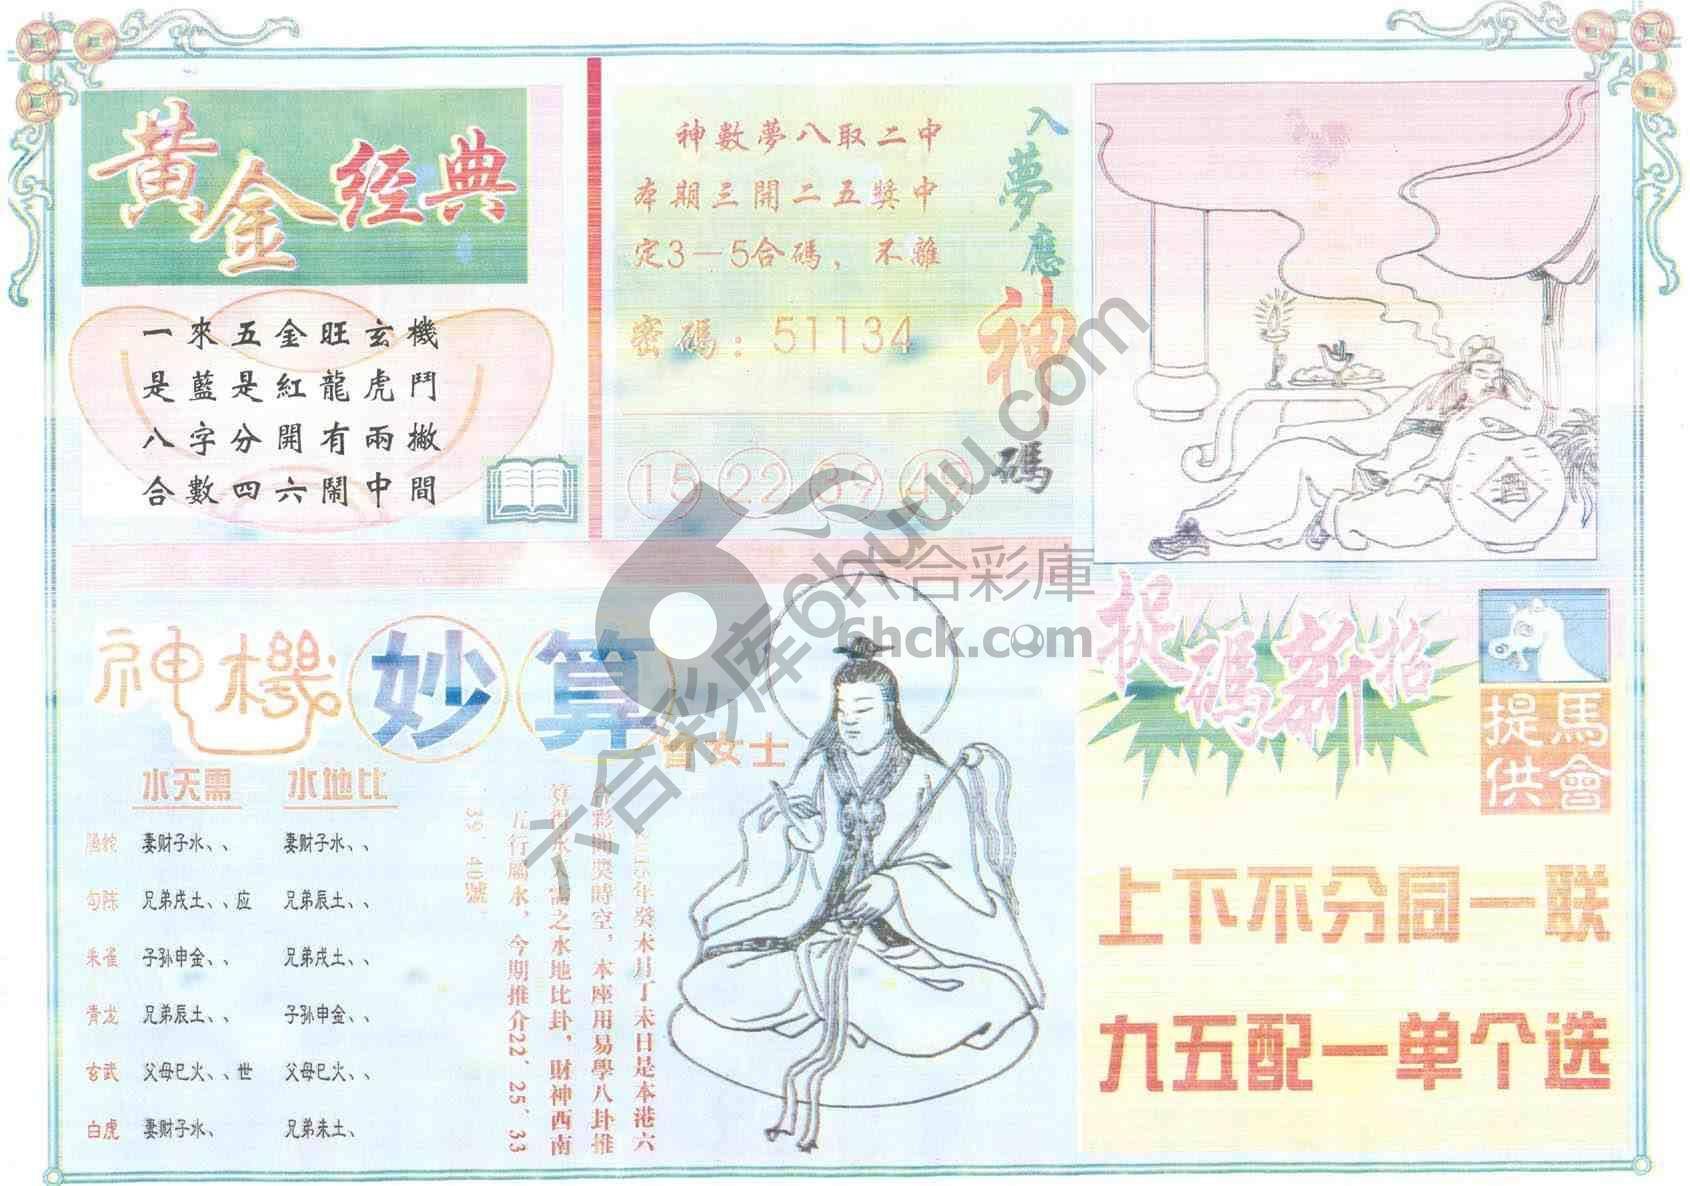 黄金经典
一來五金旺玄機
是藍是紅龍虎鬥
八字分開有兩撇
合數四六鬧中間
神數夢八取二中
本期三開二五獎中
定3－5合碼，不離
密碼：51134
15 22 39
入夢應神碼
酒
神機妙算
女士
水天需 水地比
螣蛇 妻财子水、、 妻财子水、、
勾陈 兄弟戌土、、应 兄弟辰土、、
朱雀 子孙申金、、 兄弟戌土、、
青龙 兄弟辰土、、 子孙申金、、
玄武 父母巳火、、世 父母巳火、、
白虎 妻财子水、 兄弟未土、
年癸未月丁未日是本港六
彩開獎時空，本座用易學八卦推
算得水 需之水地比卦，財神西南
五行屬水，今期推介22、25、33
39、40號。
捉碼新招
馬會提供
上下不分同一联
九五配一单个选
六合彩庫
6hck.com
六合彩库6huuu.com